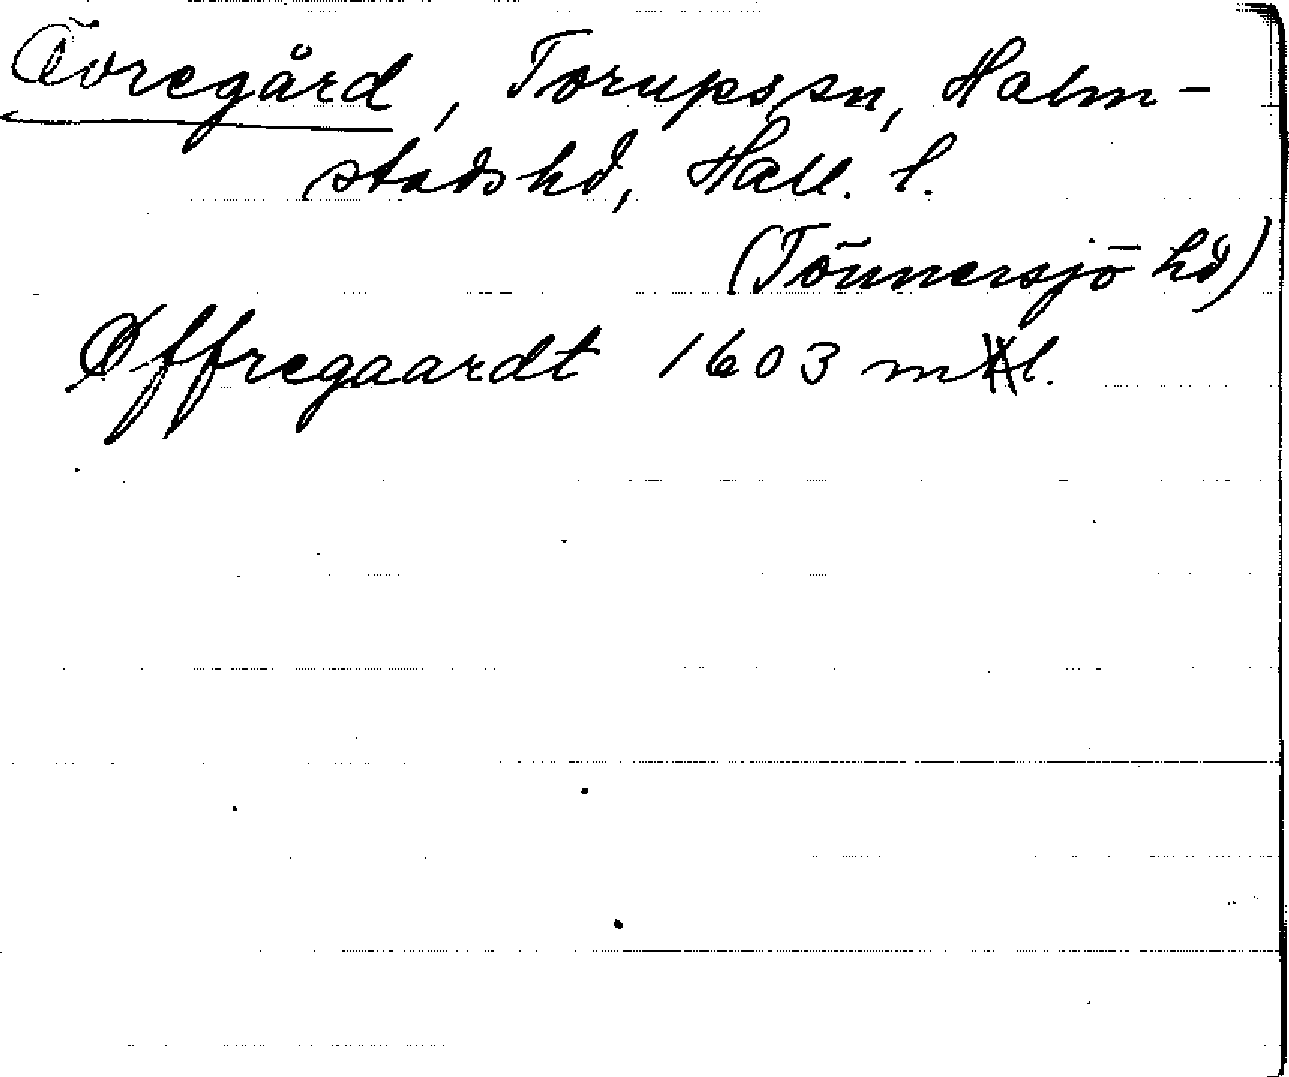 Övregård, Torups sn, Halm-
stads hd, Hall. l.
(Tönnersjö hd)
Øffregaardt 1603 ml.